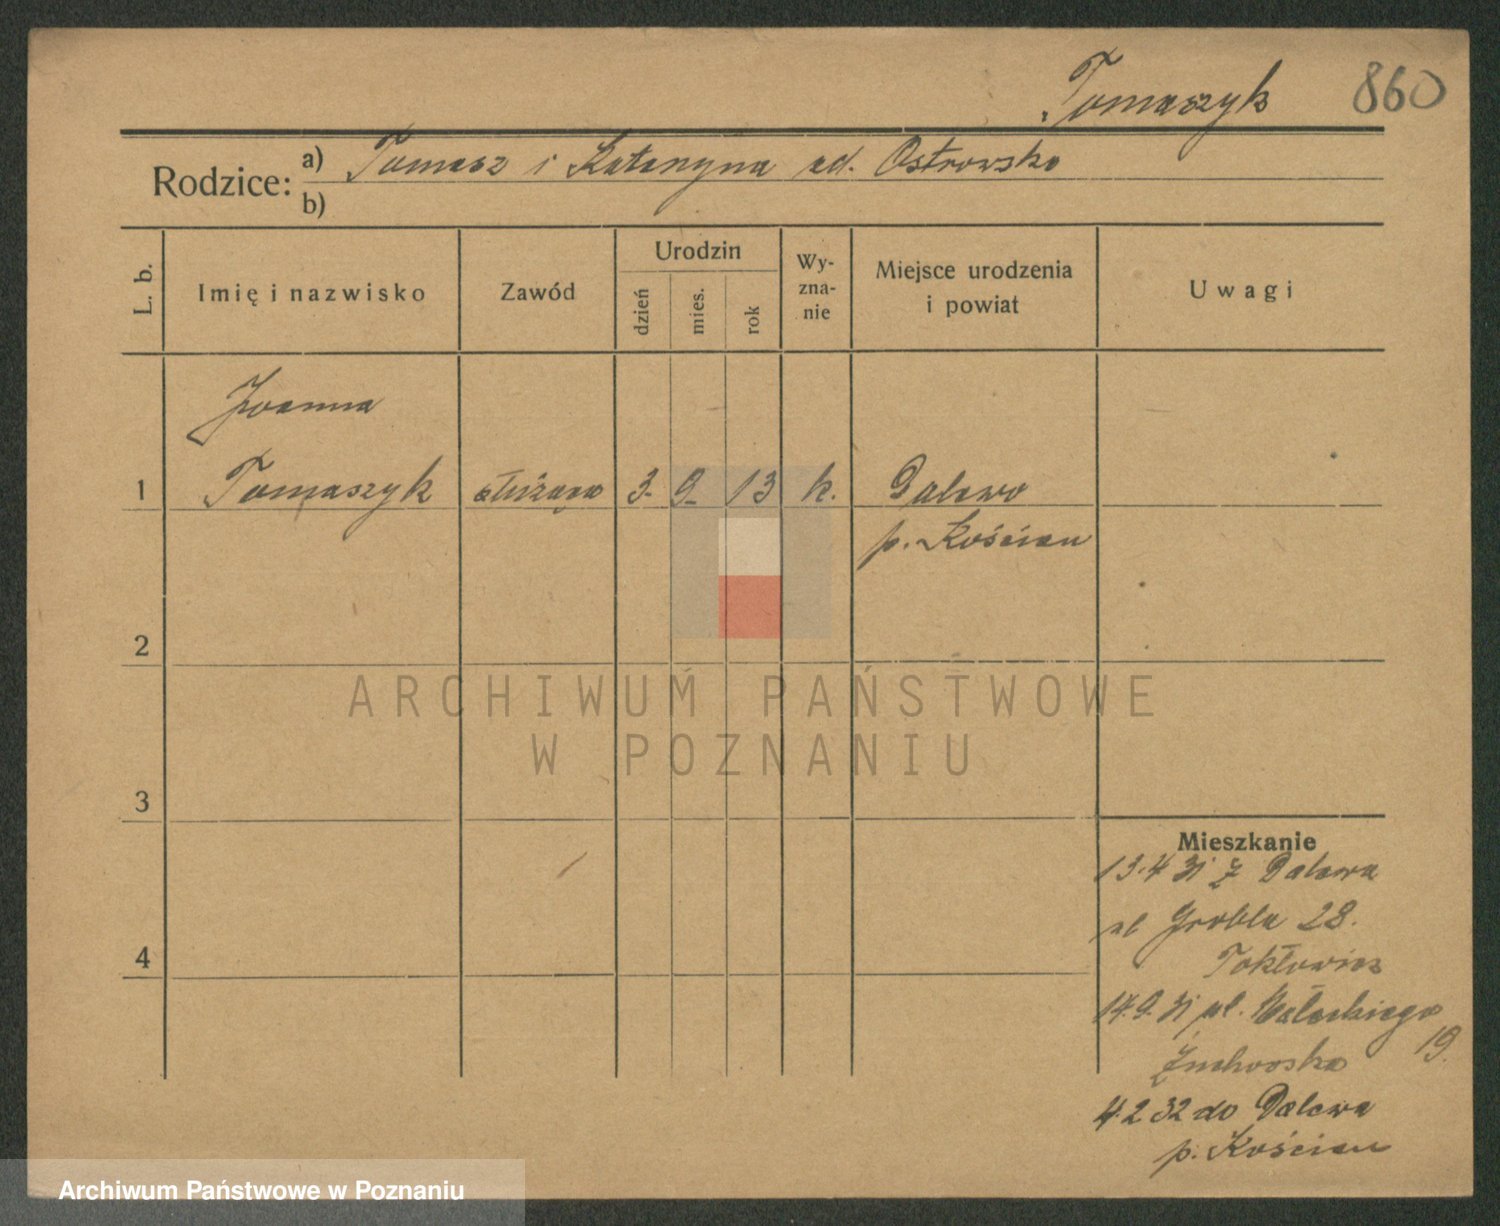 Tomaszyk 860
Rodzice: a) Tomasz i Katarzyna ed. Ostrowska
b)
L. b. Imię i nazwisko Zawód Urodzin dzień mies. rok Wy-zna-nie Miejsce urodzenia i powiat Uwagi
Joanna
1 Tomaszyk służąca 3. 9. 13 k. Dalewo
p. Kościan
2
ARCHIWUM PAŃSTWOWE
W POZNANIU
3
Mieszkanie
13.4 31 z Dalewa
ul Grobla 28.
4
14.9.31 pl. 19.
4.2 32 do Dalewa
p. Kościan
Archiwum Państwowe w Poznaniu